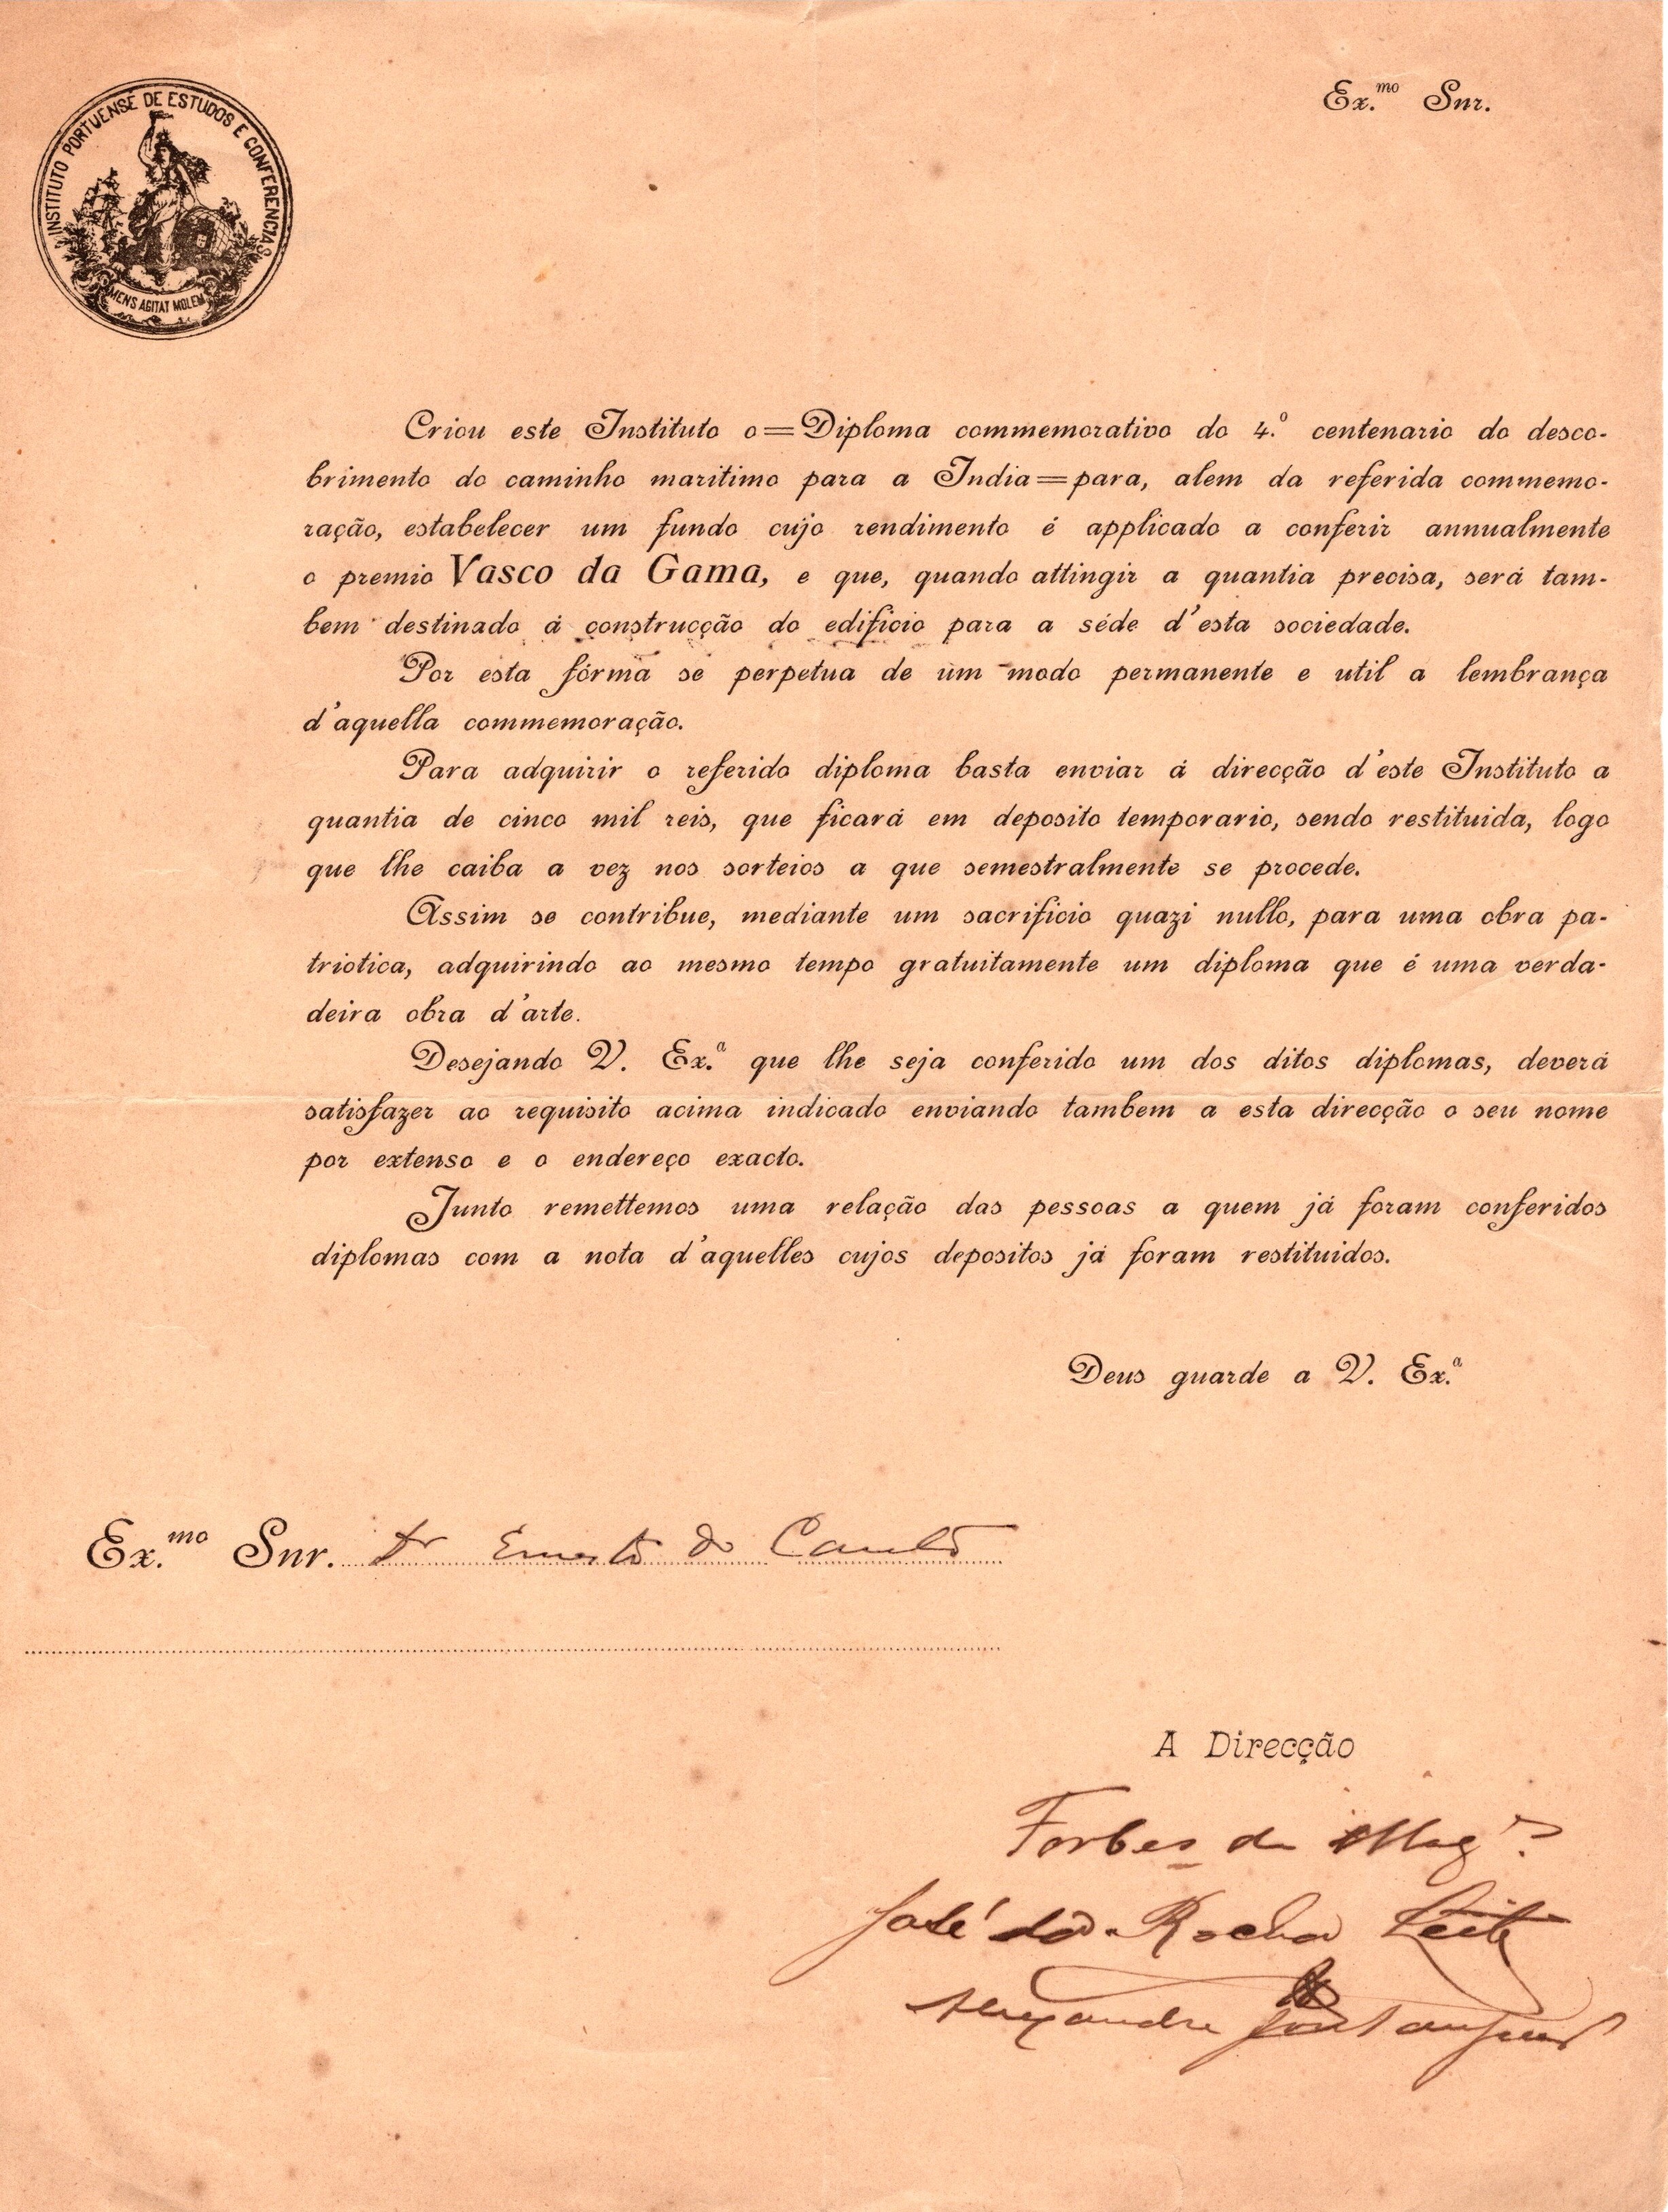 INSTITUTO PORTUENSE DE ESTUDOS E CONFERENCIAS
MENS AGITAT MOLEM
Ex.mo Snr.
Criou este Instituto o=Diploma commemorativo do 4.º centenario do desco-
brimento do caminho maritimo para a India=para, alem da referida commemo-
ração, estabelecer um fundo cujo rendimento é applicado a conferir annualmente
o premio Vasco da Gama, e que, quando attingir a quantia precisa, será tam-
bem destinado á construcção do edificio para a séde d'esta sociedade.
Por esta fórma se perpetua de um modo permanente e util a lembrança
d'aquella commemoração.
Para adquirir o referido diploma basta enviar á direcção d'este Instituto a
quantia de cinco mil reis, que ficará em deposito temporario, sendo restituida, logo
que lhe caiba a vez nos sorteios a que semestralmente se procede.
Assim se contribue, mediante um sacrificio quazi nullo, para uma obra pa-
triotica, adquirindo ao mesmo tempo gratuitamente um diploma que é uma verda-
deira obra d'arte.
Desejando V. Ex.ª que lhe seja conferido um dos ditos diplomas, deverá
satisfazer ao requisito acima indicado enviando tambem a esta direcção o seu nome
por extenso e o endereço exacto.
Junto remettemos uma relação das pessoas a quem já foram conferidos
diplomas com a nota d'aquelles cujos depositos já foram restituidos.
Deus guarde a V. Ex.ª
Ex.mo Snr. Dr Ernesto do Canto
A Direcção
Forbes de Mag.es
José da Rocha Leite
Alexandre